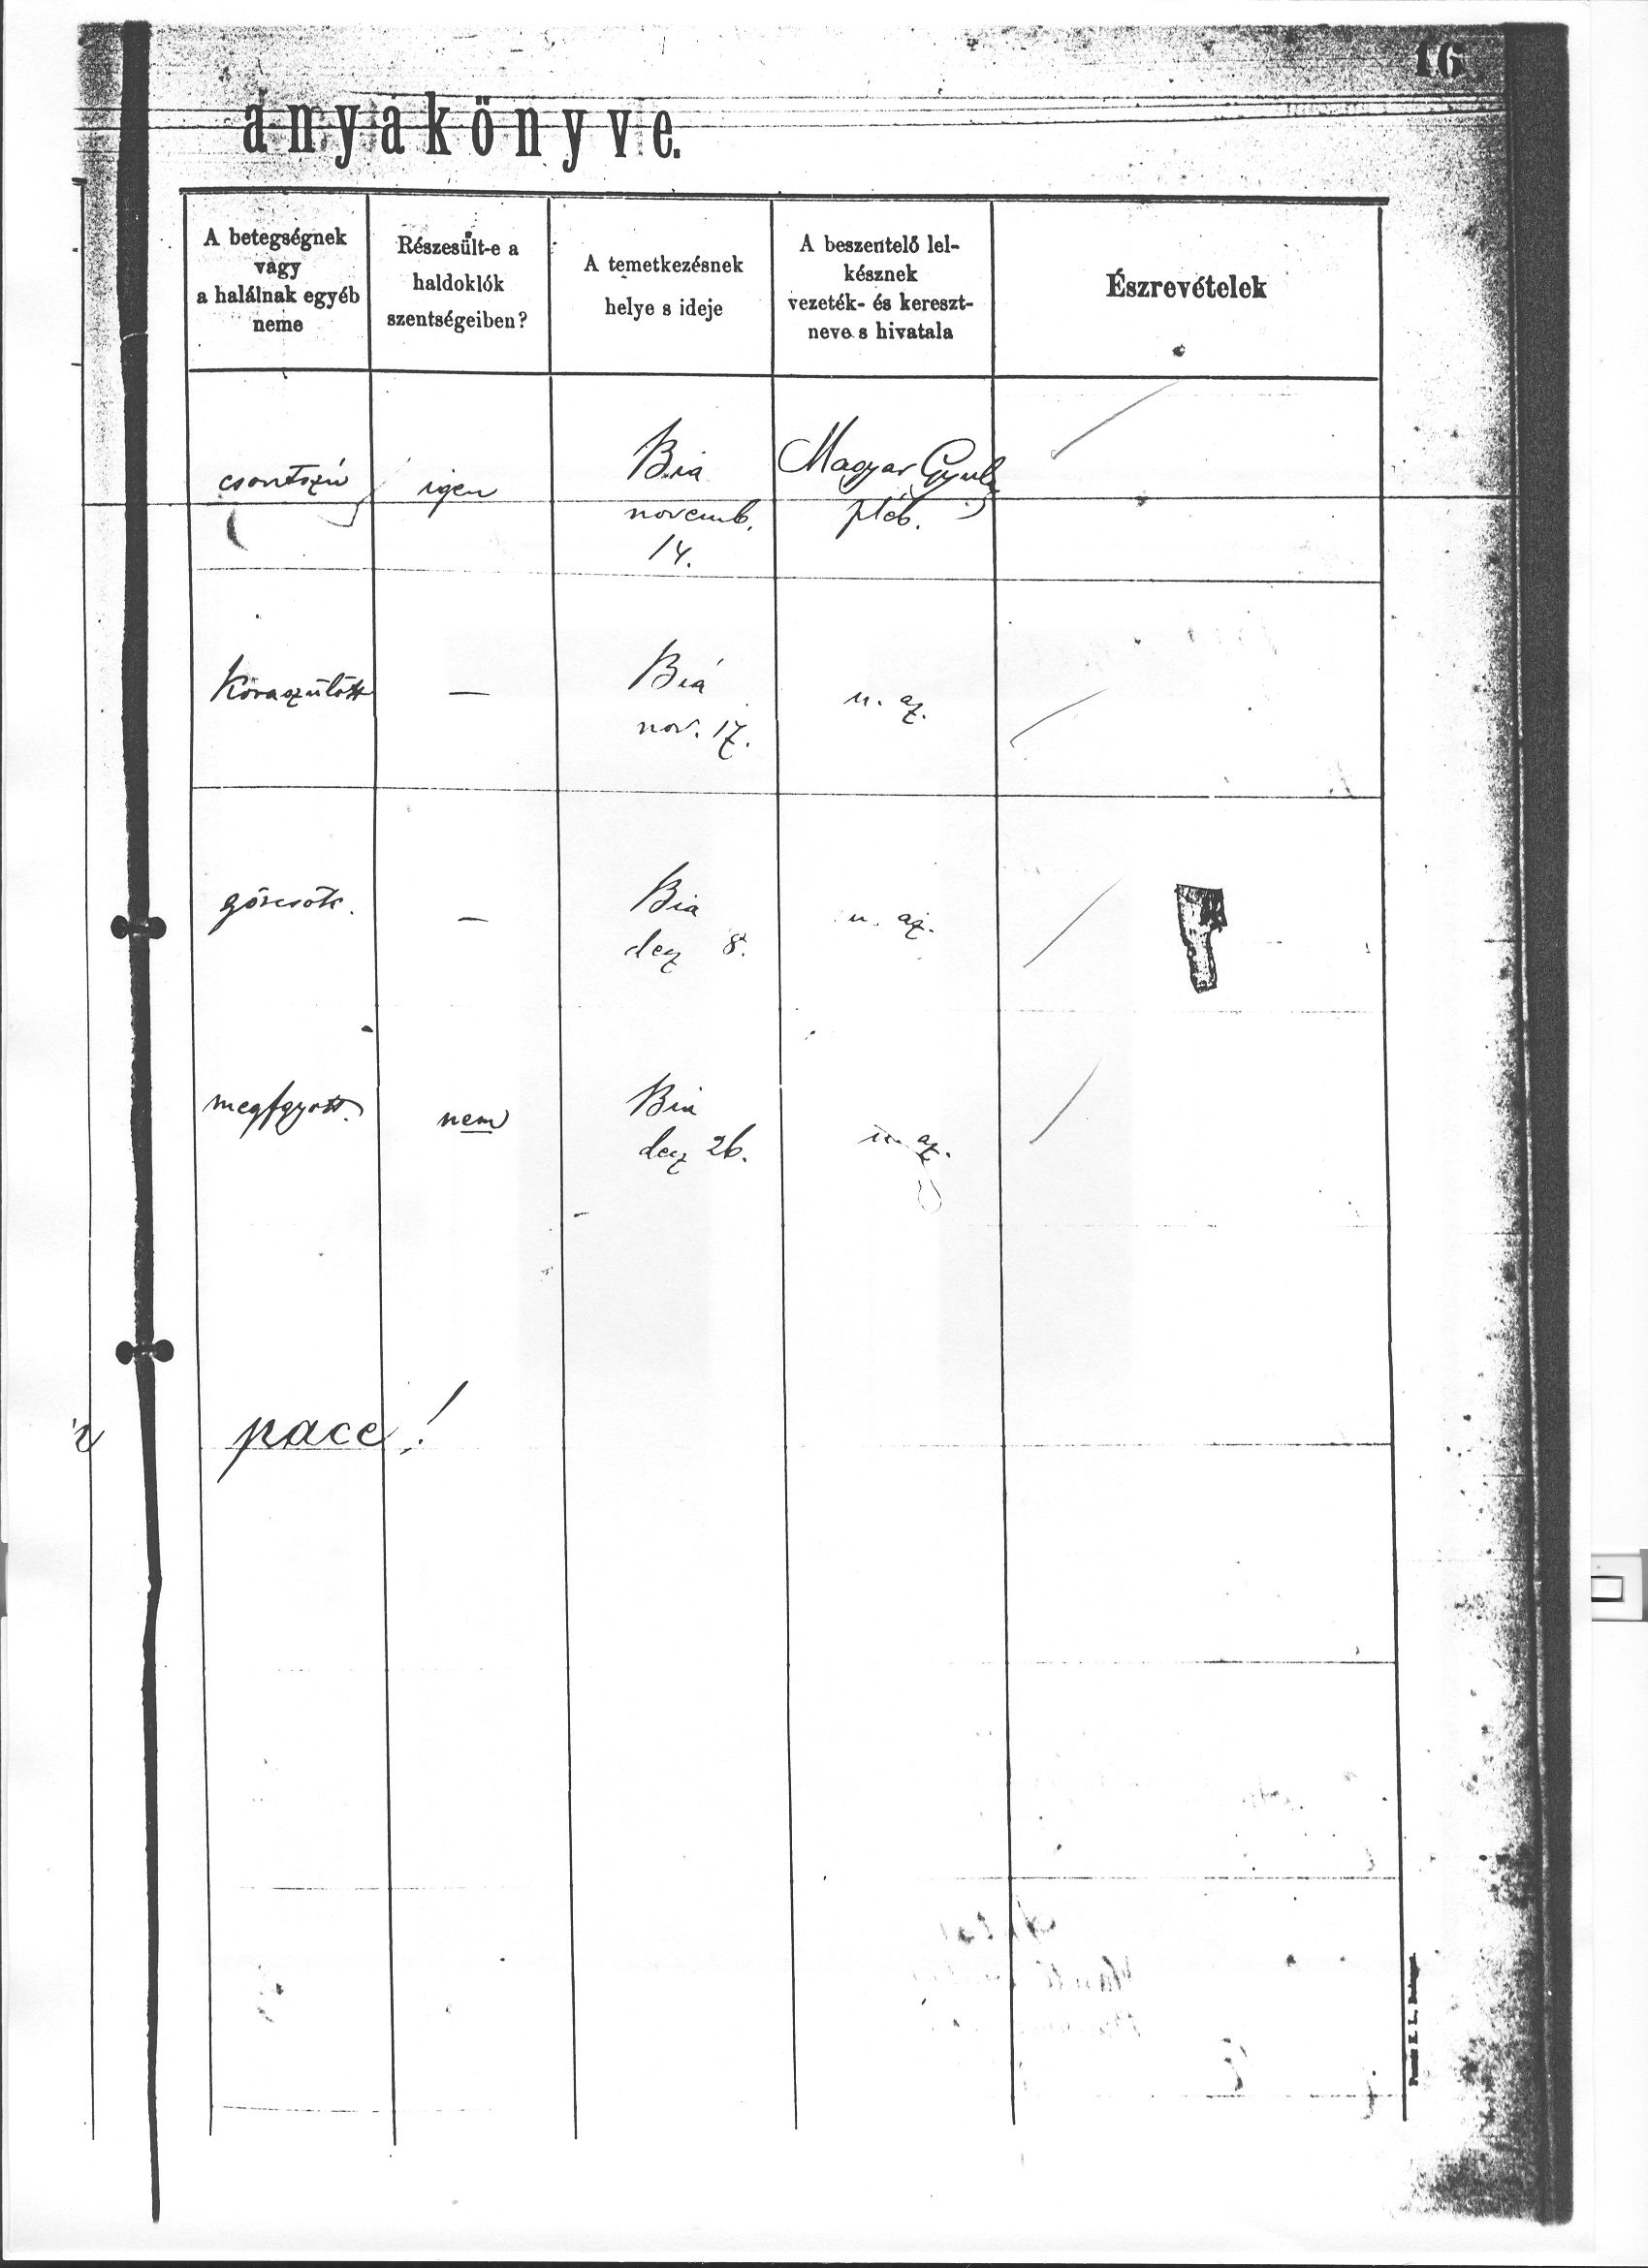 16
anyakönyve.
A betegségnek
vagy
a halálnak egyéb
neme
Részesült-e a
haldoklók
szentségeiben?
A temetkezésnek
helye s ideje
A beszentelő lel-
késznek
vezeték- és kereszt-
neve s hivatala
Észrevételek
csontszú
igen
Bia
novemb.
14.
Magyar Gyula
pléb.
Koraszülött
—
Biá
nov. 17.
u. az.
görcsök.
—
Bia
dez 8.
u. az.
megfagyott.
nem
Bia
dez 26.
u. az.
pace!